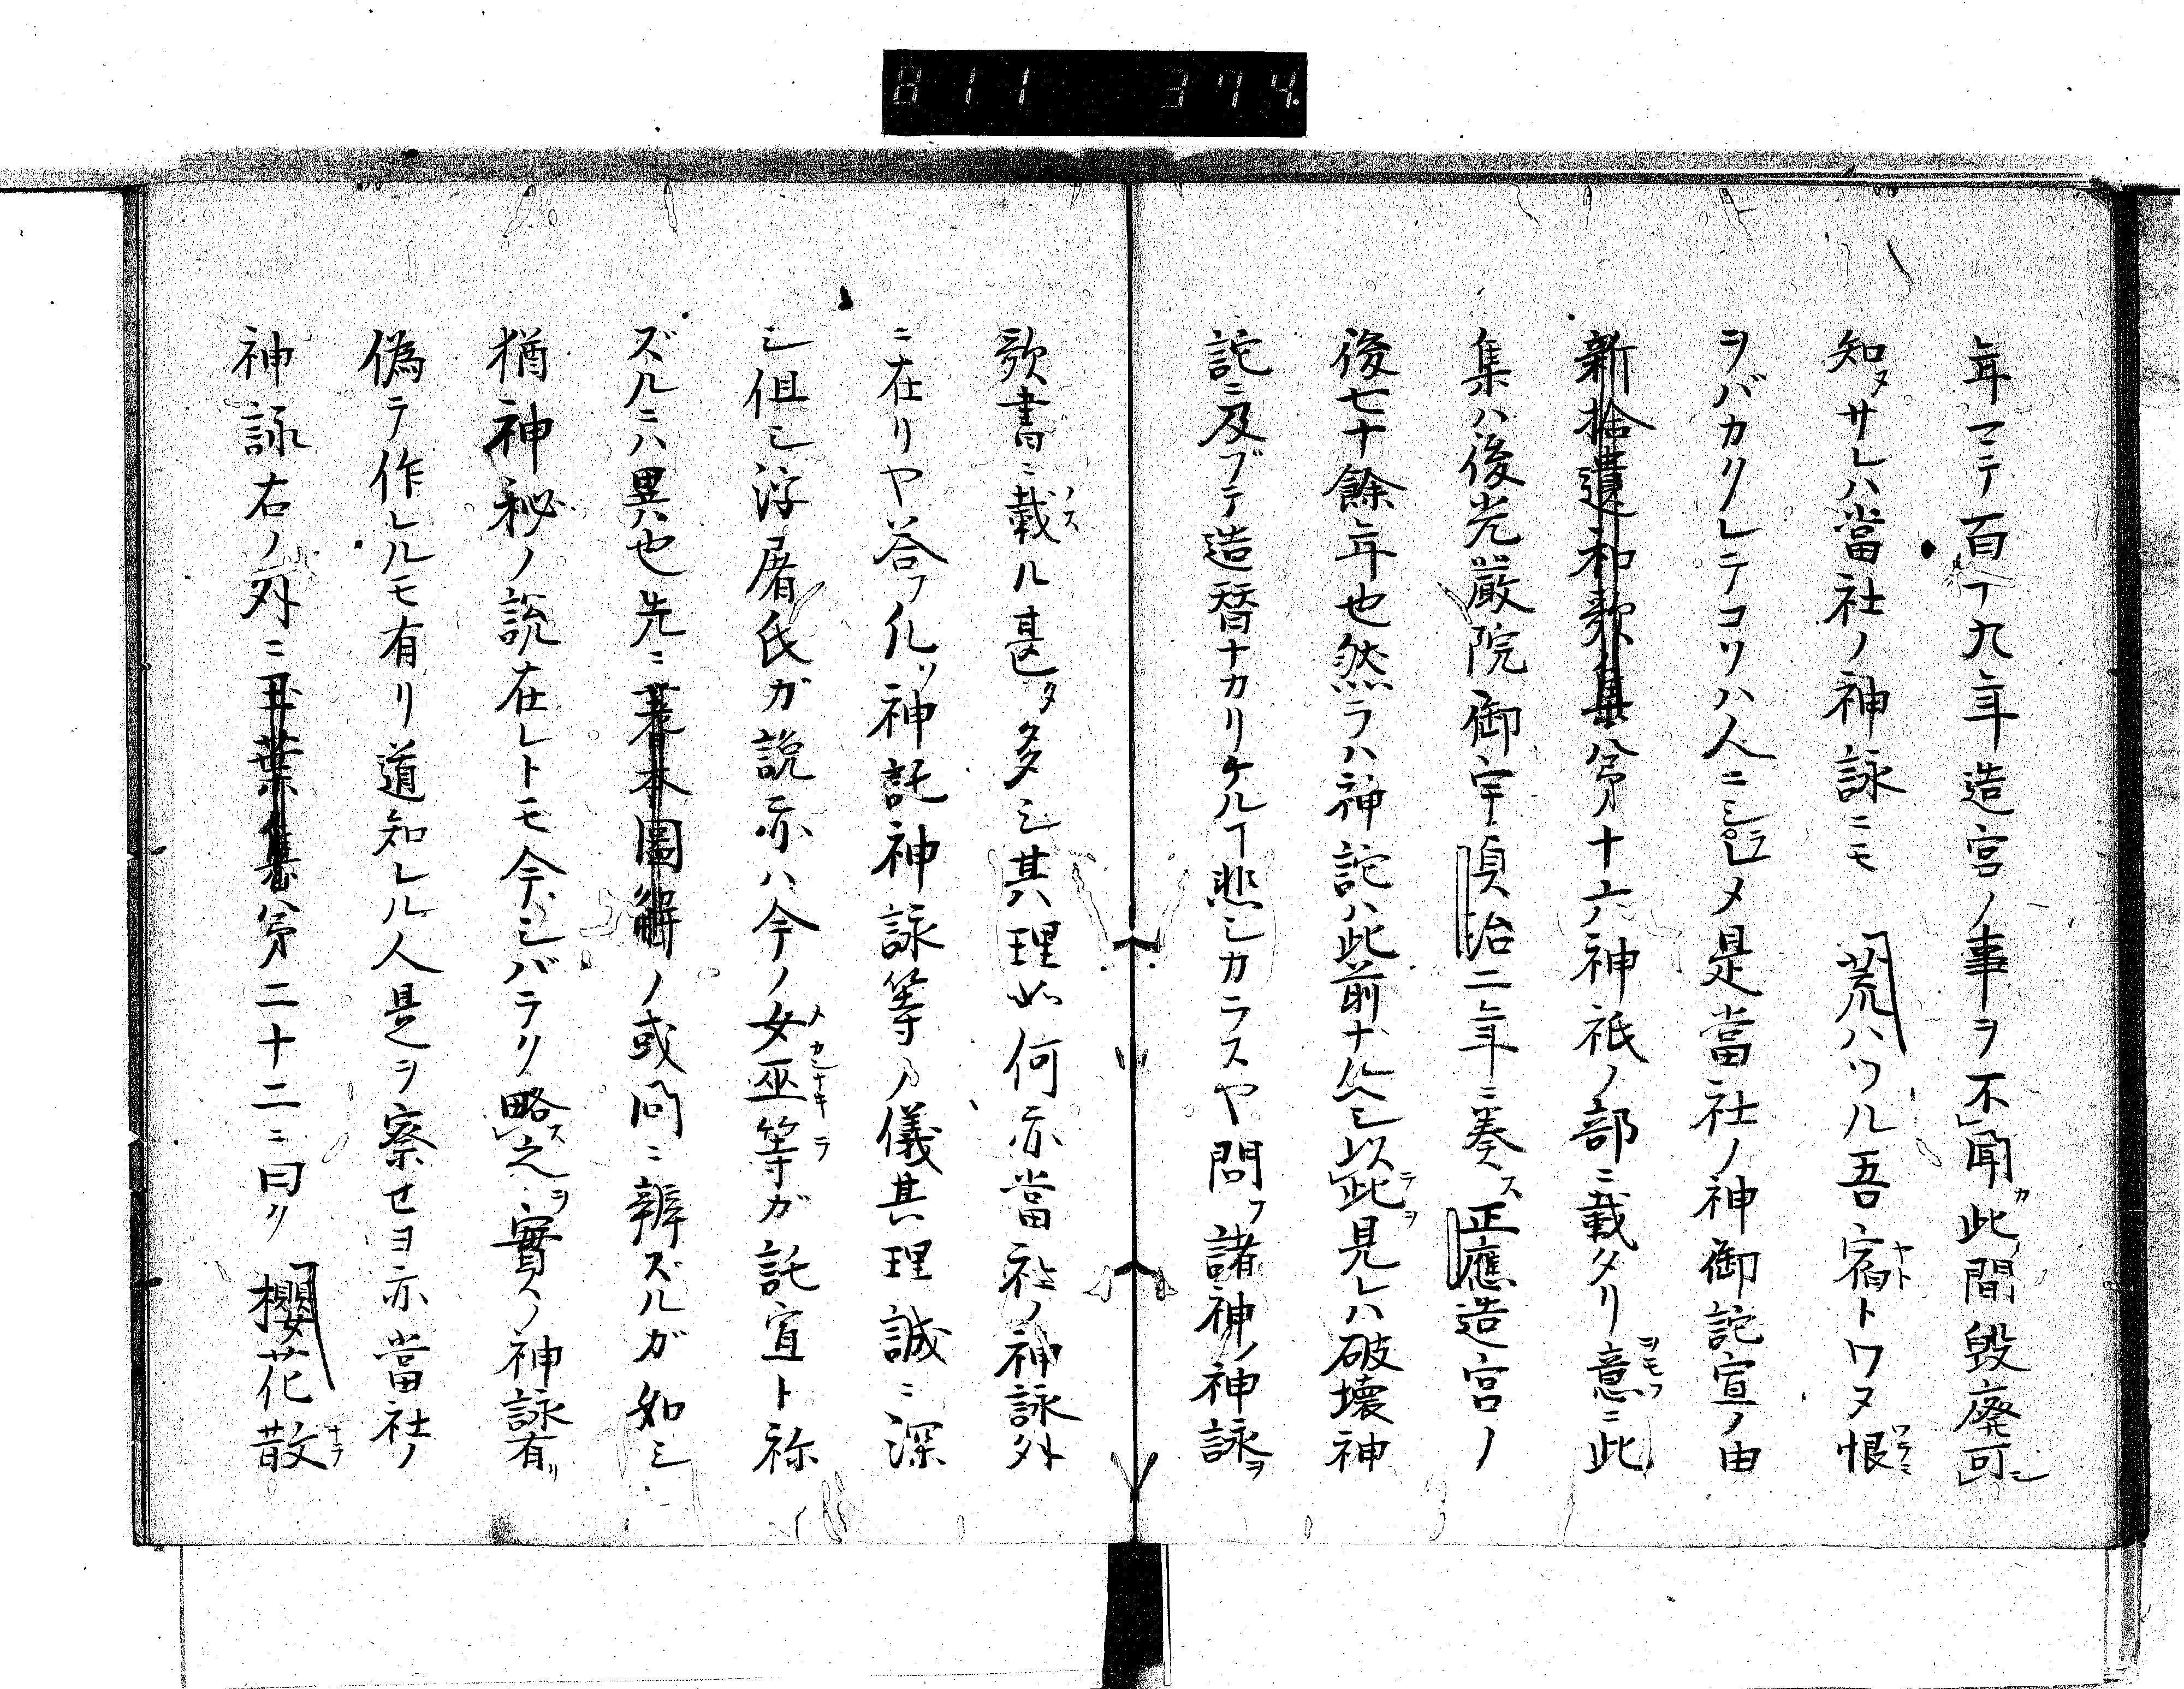 811 374.
年マテ百丁九年造宮ノ事ヲ不聞カ此間毀廃可シ
知ヌサレハ當社ノ神詠ニモ荒ハツル吾宿ヤトトワヌ恨ウラミ
ヲバカクレテコソハ人ニシラレメ是當社ノ神御託宣ノ由
新拾遺和歌集第十六ノ神祇ノ部ニ載タリ意ヲモフニ此
集ハ後光嚴院御宇貞治二年ニ奏ス正應造宮ノ
後七十餘年也然ラハ神託ハ此前ナルヘシ以テ此ヲ見レハ破壊神
託ニ及ブテ造替ナカリケルヿ悲シカラスヤ問フ諸神ノ神詠ヲ
歌書ニ載ノスル甚タ多シ其理如何亦當社ノ神詠外
ニ在リヤ答フ凡ソ神託神詠等ノ儀其理誠ニ深
シ但シ浮屠氏ガ説亦ハ今ノ女巫メカンナキ等ラガ託宣ト祢
ズルニハ異也先ニ著本圖解ノ或問ニ辨ズルガ如シ
猶神秘ノ説在レトモ今シバラク略ス之ヲ實ノ神詠有リ
偽テ作レルモ有リ道知レル人是ヲ察セヨ亦當社ノ
神詠右ノ外ニ玉葉集第二十二ニ曰ク櫻花散ナラ